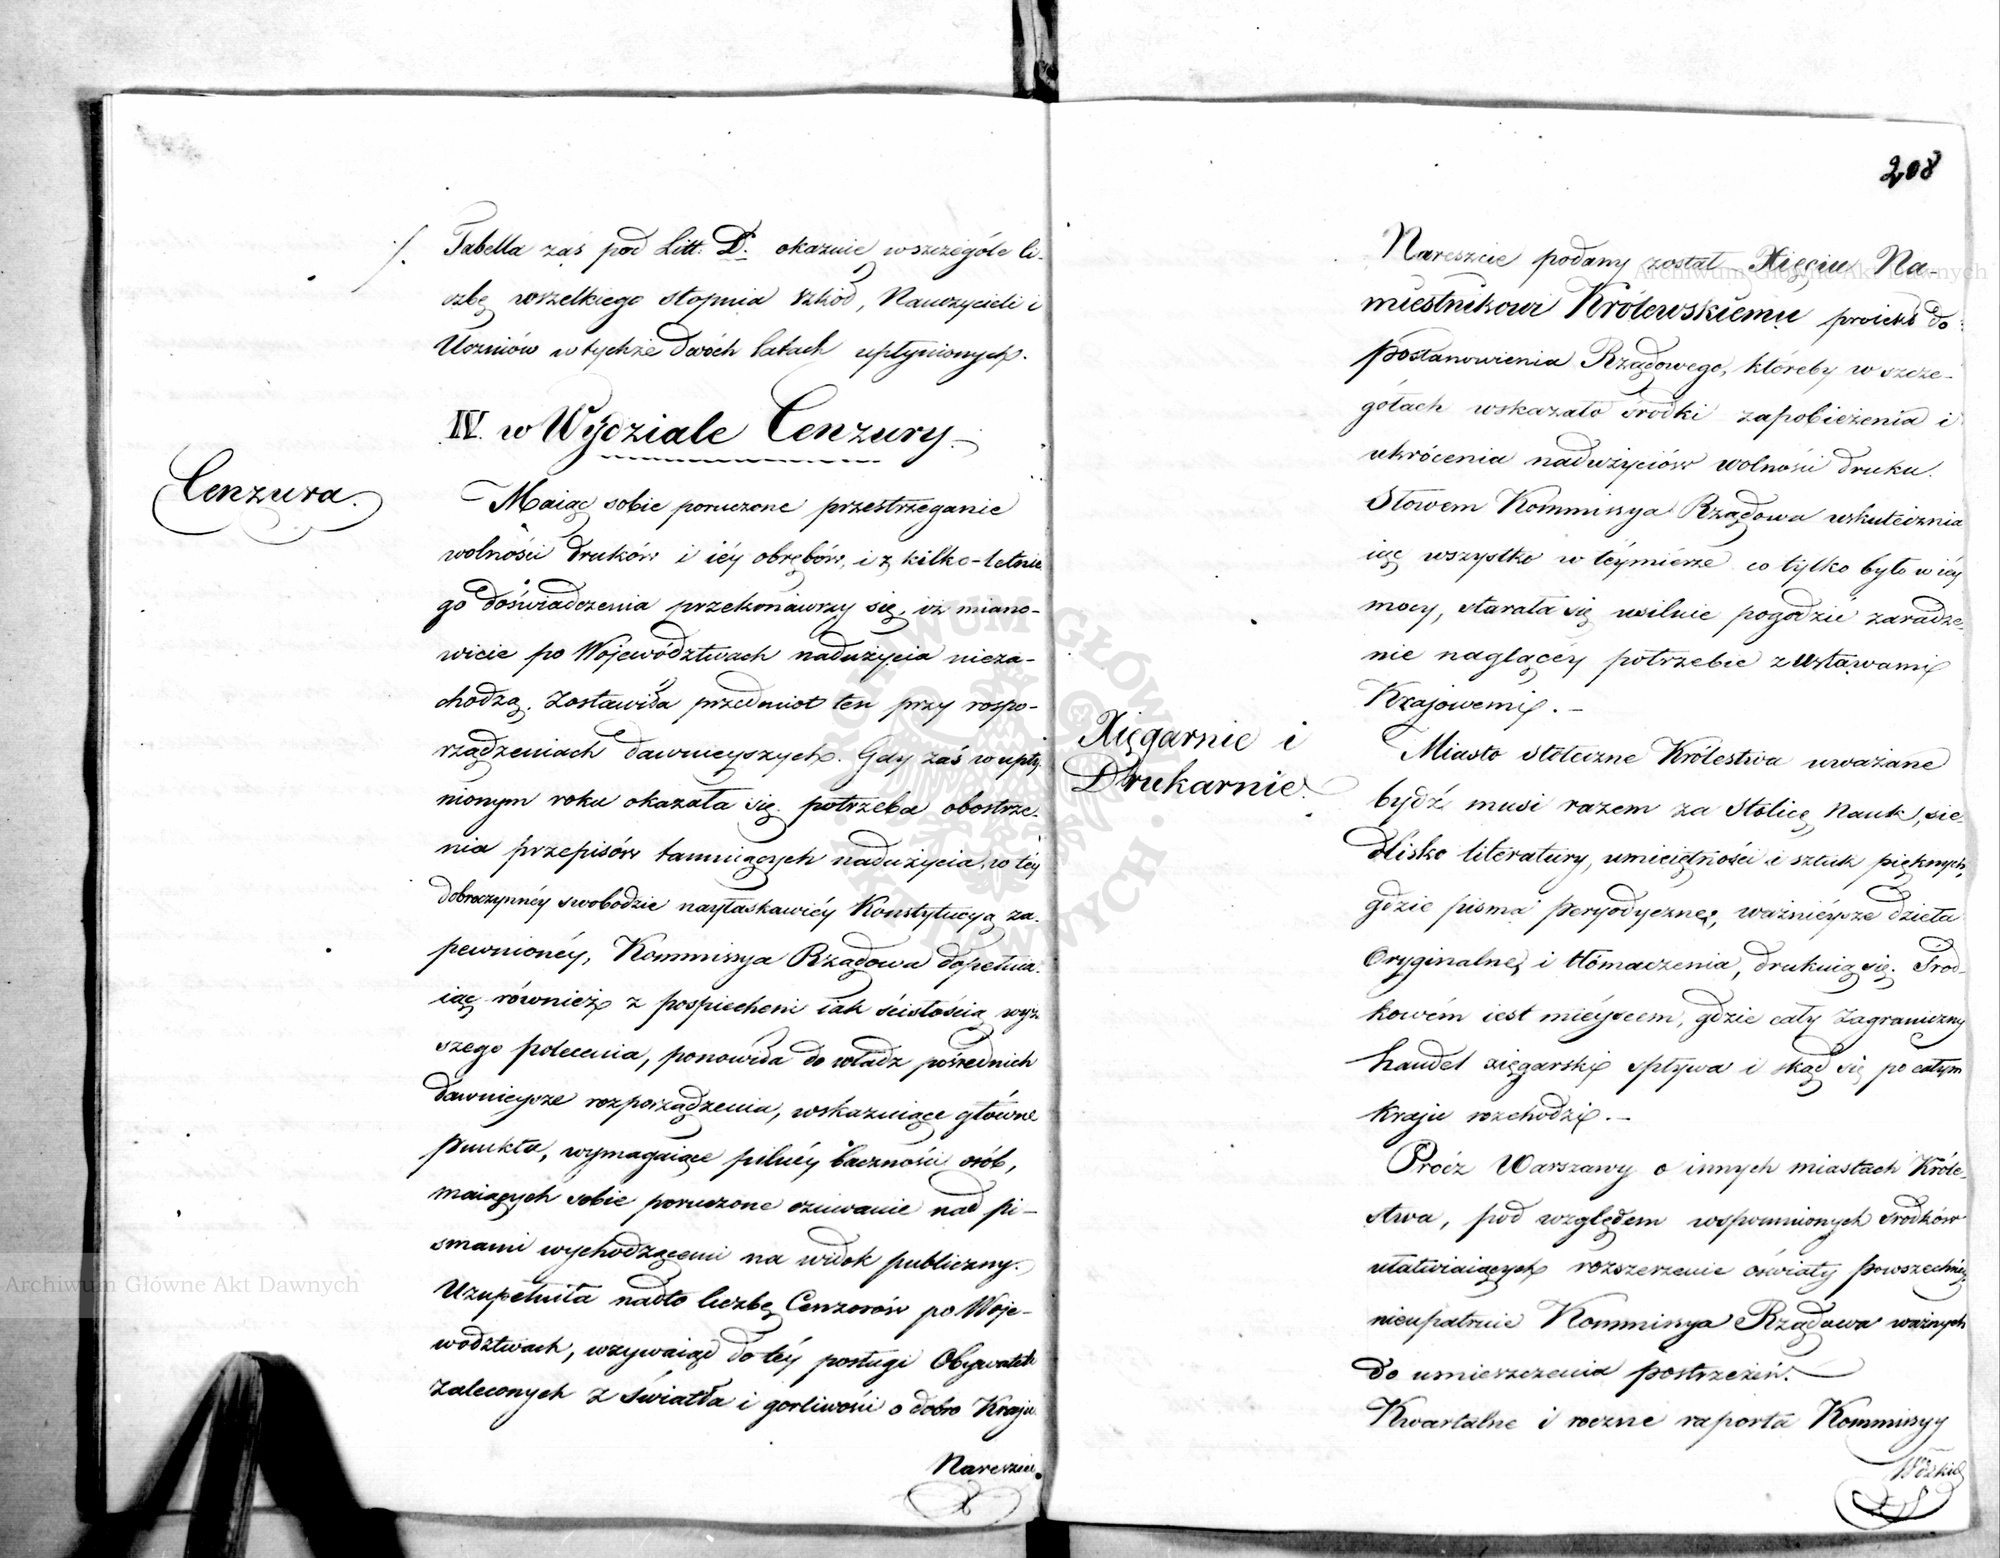 ./. Tabella zaś pod Litt: D. okazuie wszczególe li-
czbę wszelkiego stopnia szkół, Nauczycieli i
Uczniów w tychże dwóch latach upłynionych.
IV. w Wydziale Cenzury.
Cenzura.
Maiąc sobie poruczone przestrzeganie
wolności druków i iéy obrębów, i z kilko-letnie
go doświadczenia przekonawszy się, iż miano-
wicie po Województwach nadużycia nieza-
chodzą. Zostawiła przedmiot ten przy rospo-
rządzeniach dawnieyszych. Gdy zaś w upły-
nionym roku okazała się potrzeba obostrze-
nia przepisów tamuiących nadużycia, w téy
dobroczynnéy swobodzie nayłaskawiéy Konstytucyą za-
pewnionéy, Kommissya Rządowa dopełnia-
iąc również z pospiechem iak ścisłością wyż-
szego polecenia, ponowiła do władz pośrednich
dawnieysze rozporządzenia, wskazuiące główne
punkta, wymagaiące pilnéy baczności osób,
maiących sobie poruczone czuwanie nad pi-
smami wychodzącemi na widok publiczny.
Uzupełniła nadto liczbę Cenzorów po Woje-
wództwach, wzywaiąc do téy posługi Obywateli
zaleconych z światła i gorliwości o dobro Kraju
Nareszcie
208
Nareszcie podany został Xięciu Na-
miestnikowi Królewskiemu proiekt do
postanowienia Rządowego, któreby w szcze-
gółach wskazało środki zapobieżenia i
ukrócenia nadużyciów wolności druku.
Słowem Kommissya Rządowa uskutecznia
iąc wszystko w téymierze co tylko było w iéy
mocy, starała się usilnie pogodzić zaradze-
nie naglącéy potrzebie z ustawami
Krajowemi. -
Xięgarnie i
Drukarnie.
Miasto stołeczne Królestwa uważane
bydź musi razem za Stolicę Nauk, sie-
dlisko literatury, umieiętności i sztuk pięknych,
gdzie pisma peryodyczne, ważnieysze dzieła
Oryginalne, i tłómaczenia, drukuią się. Środ-
kowém iest mieyscem, gdzie cały Zagraniczny
handel xięgarski spływa i skąd się po całym
kraju rozchodzi. -
Prócz Warszawy o innych miastach Króle-
stwa, pod względem wspomnionych środków
ułatwiaiących rozszerzenie oświaty powszechnéy
nieupatruie Kommissya Rządowa ważnych
do umieszczenia postrzeżeń.
Kwartalne i roczne raporta Kommissyy
Archiwum Główne Akt Dawnych
Archiwum Główne Akt Dawnych
ARCHIWUM GŁÓWNE AKT DAWNYCH